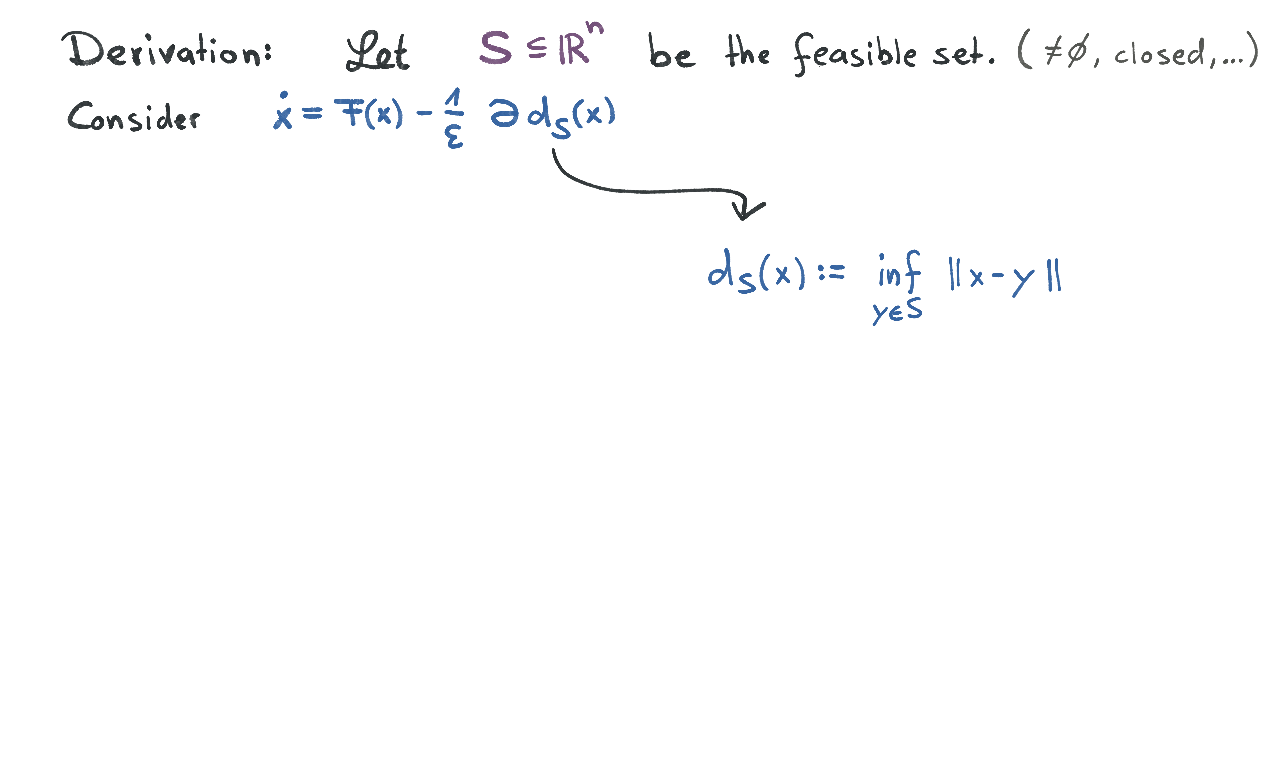 Derivation: Let S ⊆ ℝⁿ be the feasible set. (≠∅, closed,...)
Consider ẋ = F(x) - 1/ε ∂d_S(x)
d_S(x) := inf_{y∈S} ||x-y||